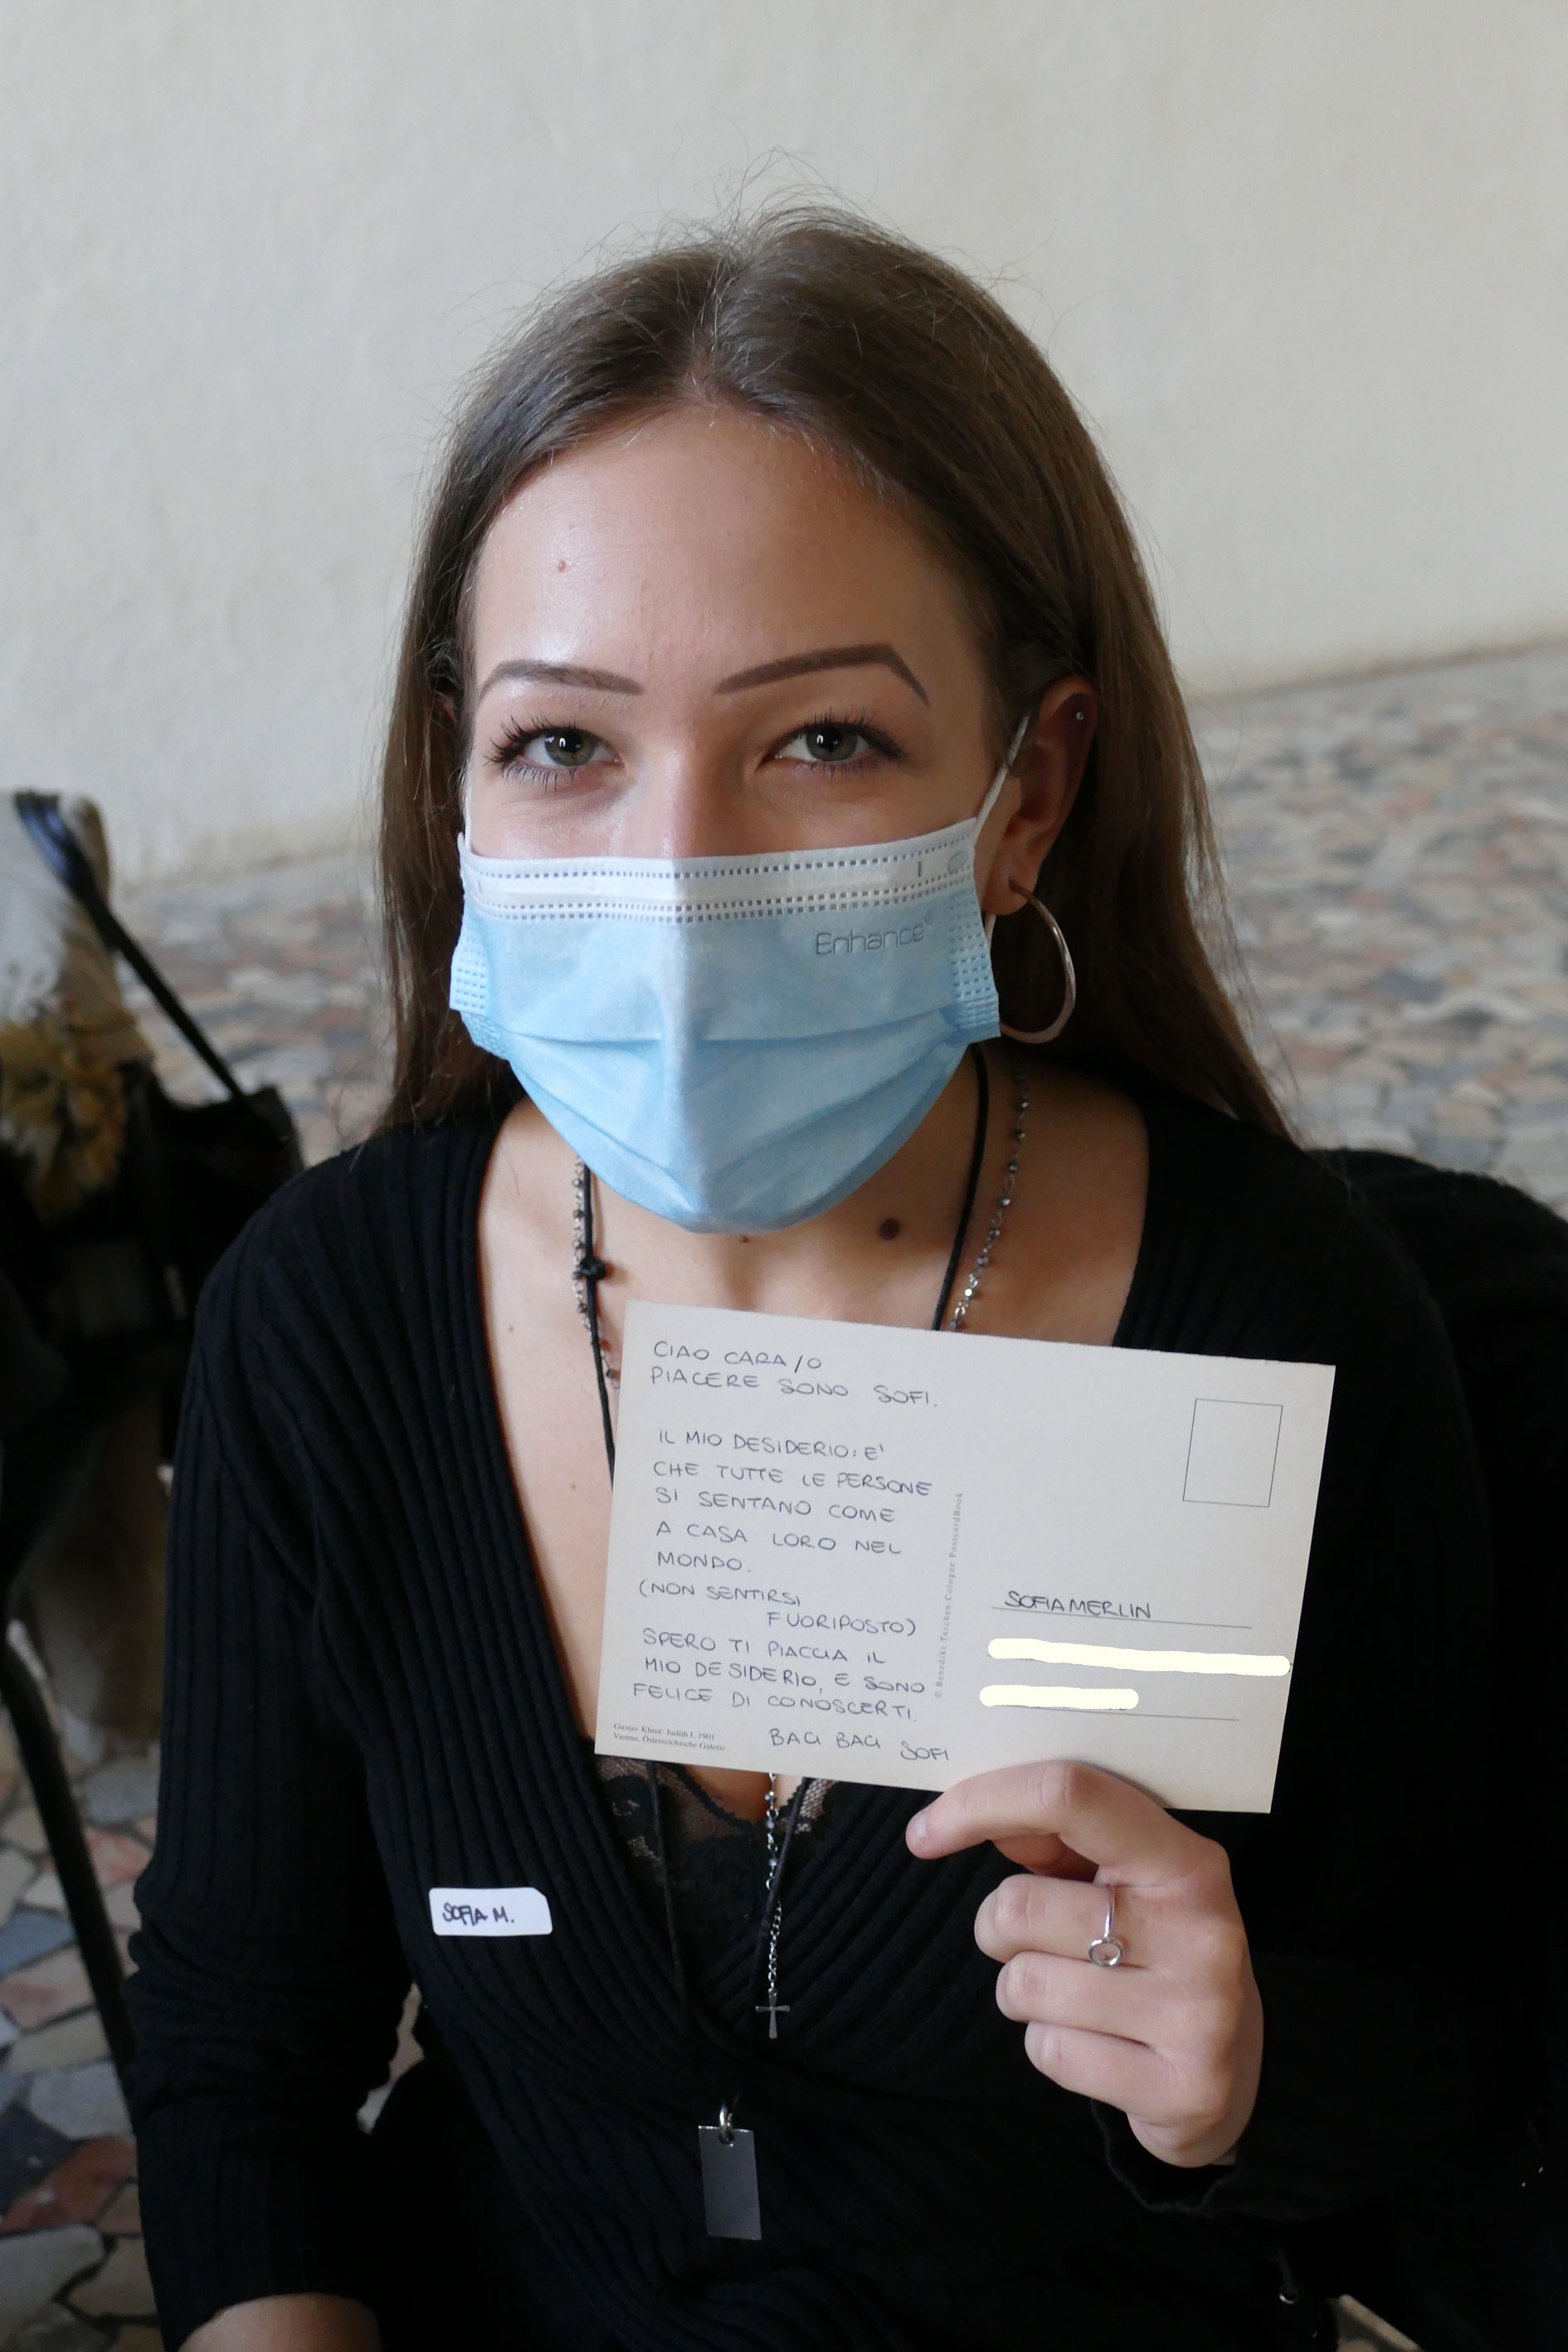 Enhance®
CIAO CARA/O
PIACERE SONO SOFI.
IL MIO DESIDERIO: E'
CHE TUTTE LE PERSONE
SI SENTANO COME
A CASA LORO NEL
MONDO.
(NON SENTIRSI
FUORIPOSTO)
SPERO TI PIACCIA IL
MIO DESIDERIO, E SONO
FELICE DI CONOSCERTI.
BACI BACI SOFI
Gustav Klimt: Judith I, 1901
Vienna, Österreichische Galerie
© Benedikt Taschen Cologne PostcardBook
SOFIA MERLIN
SOFIA M.